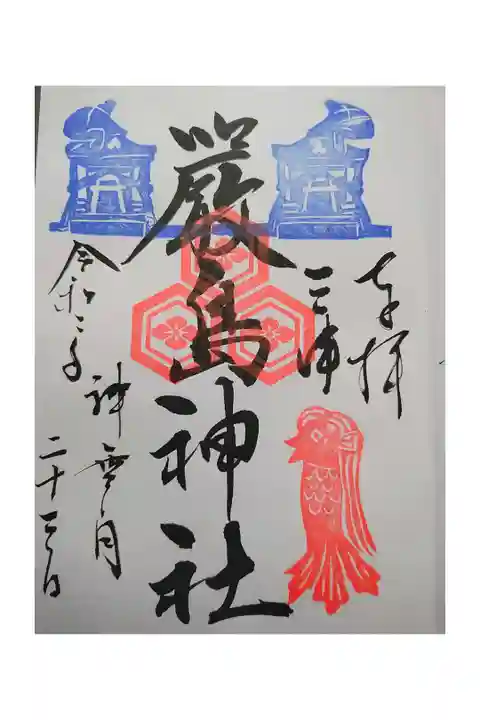 奉拝
三津
厳島神社
令和二年
神無月
二十三日